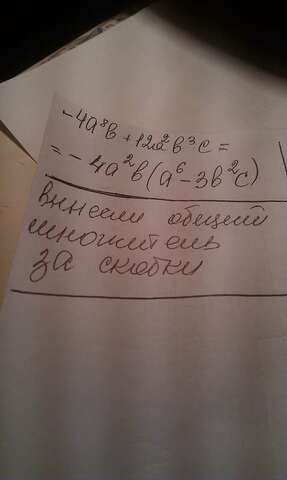 -4a⁸b + 12a²b³c =
= -4a²b(a⁶ - 3b²c)
вынесли общий
множитель
за скобки